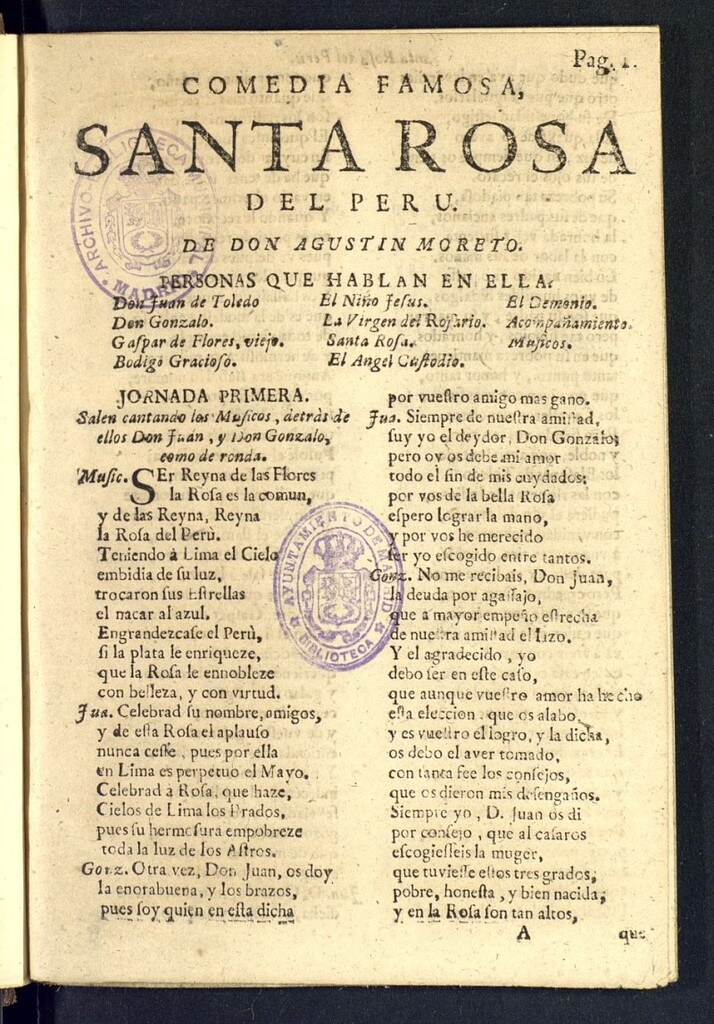 Pag. 1.
COMEDIA FAMOSA,
SANTA ROSA
DEL PERU.
DE DON AGUSTIN MORETO.
PERSONAS QUE HABLAN EN ELLA.
Don Juan de Toledo
Don Gonzalo.
Gaſpar de Flores, viejo.
Bodigo Gracioſo.
El Niño Jeſus.
La Virgen del Roſario.
Santa Roſa.
El Angel Cuſtodio.
El Demonio.
Acompañamiento.
Muſicos.
JORNADA PRIMERA.
Salen cantando los Muſicos, detràs de
ellos Don Juan, y Don Gonzalo,
como de ronda.
Muſic. SEr Reyna de las Flores
la Roſa es la comun,
y de las Reyna, Reyna
la Roſa del Perù.
Teniendo à Lima el Cielo
embidia de ſu luz,
trocaron ſus Eſtrellas
el nacar al azul.
Engrandezcaſe el Perù,
ſi la plata le enriqueze,
que la Roſa le ennobleze
con belleza, y con virtud.
Jua. Celebrad ſu nombre, amigos,
y de eſta Roſa el aplauſo
nunca ceſſe, pues por ella
en Lima es perpetuo el Mayo.
Celebrad à Roſa, que haze,
Cielos de Lima los Prados,
pues ſu hermoſura empobreze
toda la luz de los Aſtros.
Gonz. Otra vez, Don Juan, os doy
la enorabuena, y los brazos,
pues ſoy quien en eſta dicha
por vueſtro amigo mas gano.
Jua. Siempre de nueſtra amiſtad,
fuy yo el deydor, Don Gonzalo;
pero oy os debe mi amor
todo el fin de mis cuydados;
por vos de la bella Roſa
eſpero lograr la mano,
y por vos he merecido
ſer yo eſcogido entre tantos.
Gonz. No me recibais, Don Juan,
la deuda por agaſſajo,
que a mayor empeño eſtrecha
de nueſtra amiſtad el lazo.
Y el agradecido, yo
debo ſer en eſte caſo,
que aunque vueſtro amor ha hecho
eſta eleccion, que os alabo,
y es vueſtro el logro, y la dicha,
os debo el aver tomado,
con tanta fee los conſejos,
que os dieron mis deſengaños.
Siempre yo, D. Juan os di
por conſejo, que al caſaros
eſcogieſſeis la muger,
que tuvieſſe eſtos tres grados,
pobre, honeſta, y bien nacida,
y en la Roſa ſon tan altos,
A
que
ARCHIVO. BIBLIOTECA
MADRID
AYUNTAMIENTO DE MADRID
BIBLIOTECA